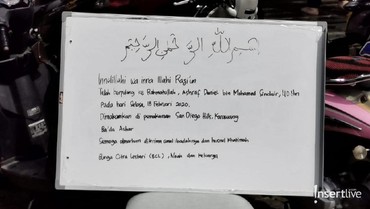 بسم الله الرحمن الرحيم
Innalillahi wa inna illahi Rajiun
Telah berpulang ke Rahmatullah, Ashraf Daniel bin Mohamed Sinclair, 40 thn
Pada hari Selasa, 18 Februari 2020.
Dimakamkan di pemakaman San Diego Hills Karawang
Ba'da Ashar
Semoga almarhum diterima amal ibadahnya dan husnul khatimah
Bunga Citra Lestari (BCL), Noah dan keluarga
insertlive